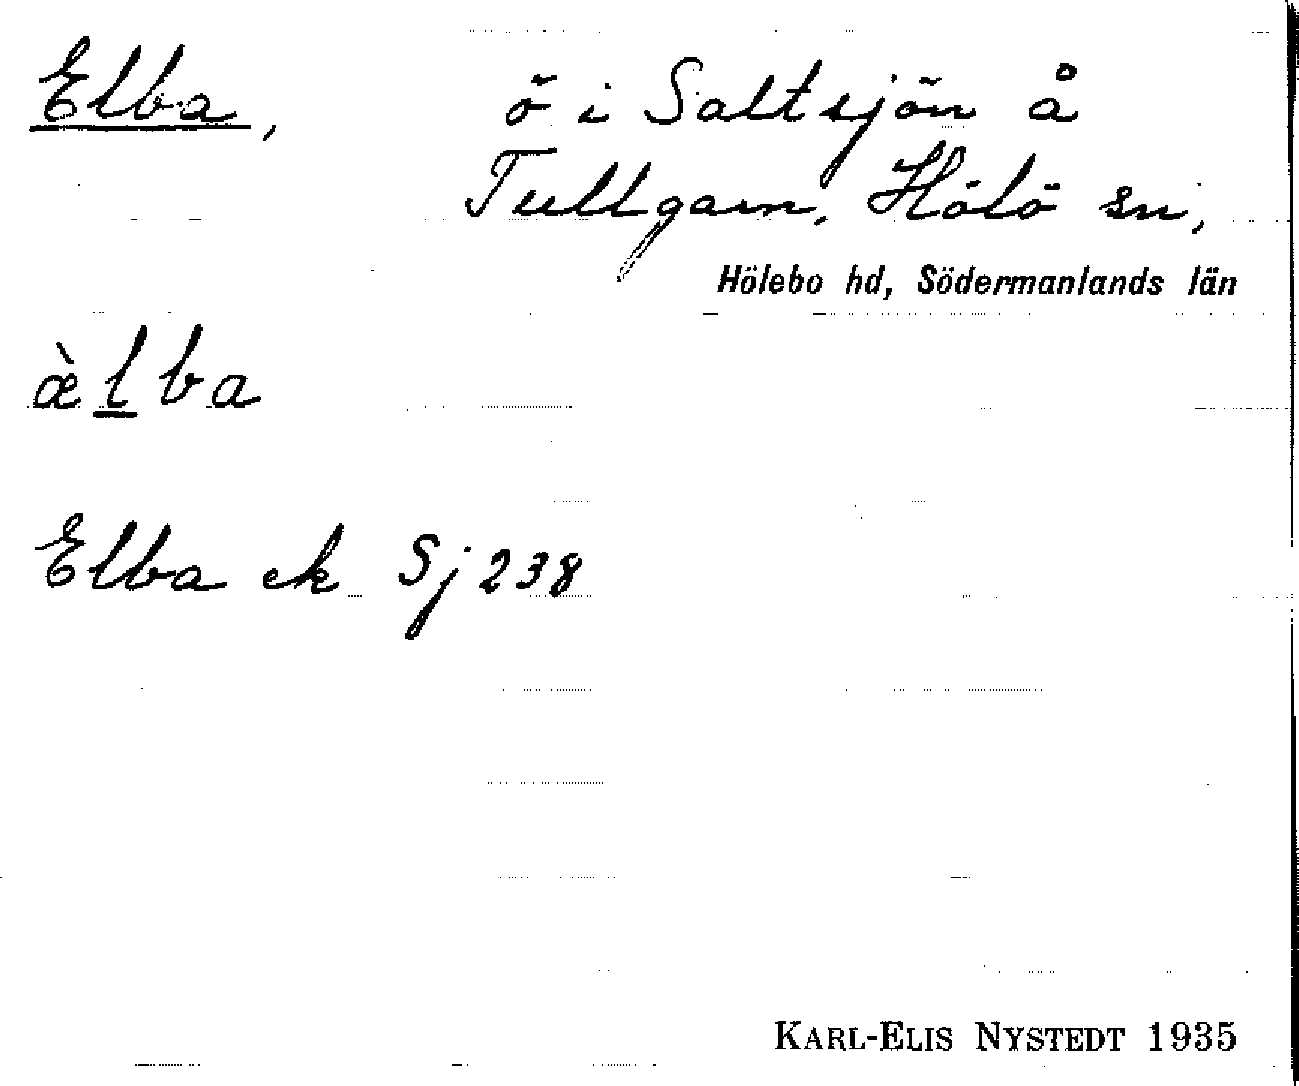 Elba, ö i Saltsjön å
Tullgarn, Hölö sn,
Hölebo hd, Södermanlands län
æ̀lba
Elba ek Sj 238
KARL-ELIS NYSTEDT 1935